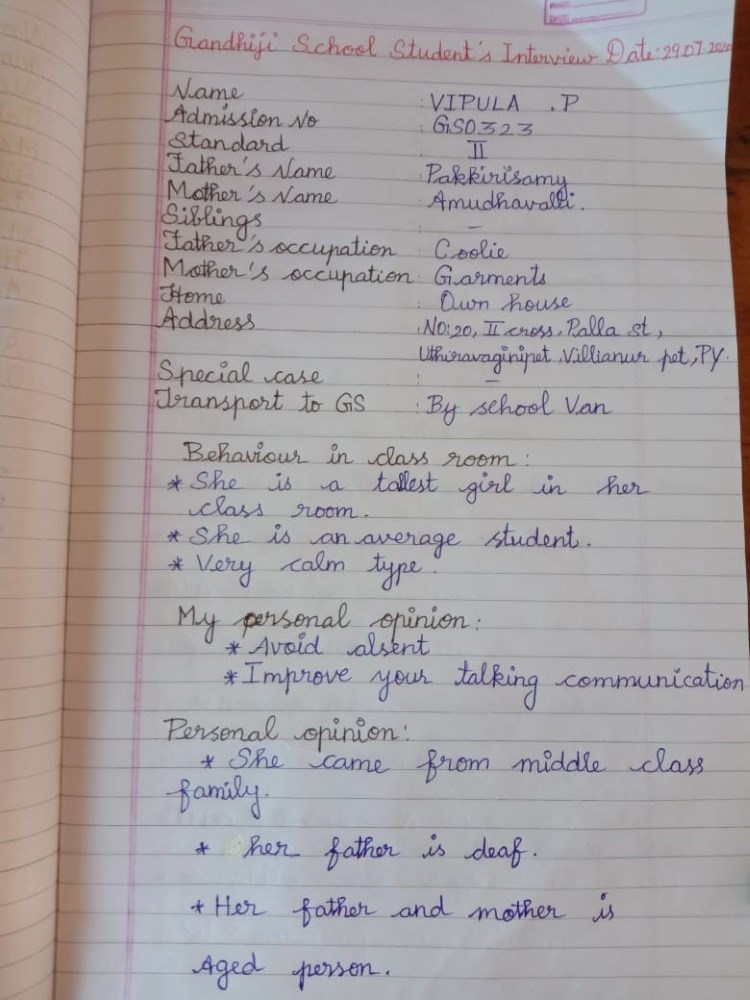 Gandhiji School Student's Interview Date: 29.07.
Name : VIPULA .P
Admission No : GS0323
Standard : II
Father's Name : Pakkirisamy
Mother's Name : Amudhavalli.
Siblings : –
Father's occupation : Coolie
Mother's occupation : Garments
Home : Own house
Address : NO:20, II cross, Palla st,
Uthiravaginipet, Villianur pet, PY.
Special case : –
Transport to GS : By school Van
Behaviour in class room :
* She is a tallest girl in her
class room.
* She is an average student.
* Very calm type.
My personal opinion :
* Avoid absent
* Improve your talking communication
Personal opinion :
* She came from middle class
family.
* her father is deaf.
* Her father and mother is
Aged person.